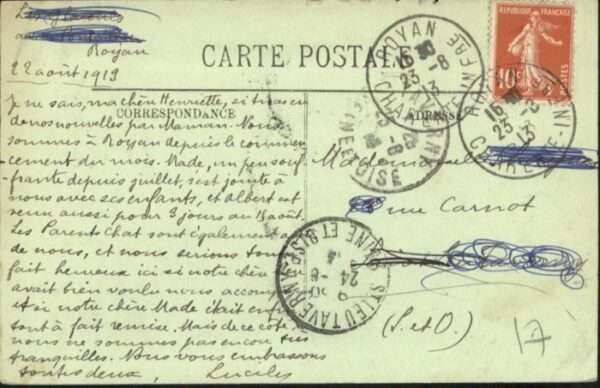 Royan
22 août 1913
CARTE POSTALE
CORRESPONDANCE
ADRESSE
Je ne sais, ma chère Henriette, si tu as eu
de nos nouvelles par Maman. Nous
sommes à Royan depuis le commen-
cement du mois. Made, un peu souf-
frante depuis juillet, s'est jointe à
nous avec ses enfants, et Albert est
venu aussi pour 3 jours au 15 août.
Les Parents Chat sont également
de nous, et nous serions tout
fait heureux ici si notre chère
avait bien voulu nous accom
et si notre chère Made était
tout à fait remise. Mais de ce côté,
nous ne sommes pas encore très
tranquilles. Nous vous embrassons
toutes deux, Lucile
Mademoiselle
rue Carnot
(S. et O.)
17
RÉPUBLIQUE FRANÇAISE
10c
POSTES
ROYAN
23-8
13
ROYAN
16
23-8
13
SEINE ET OISE
24-8